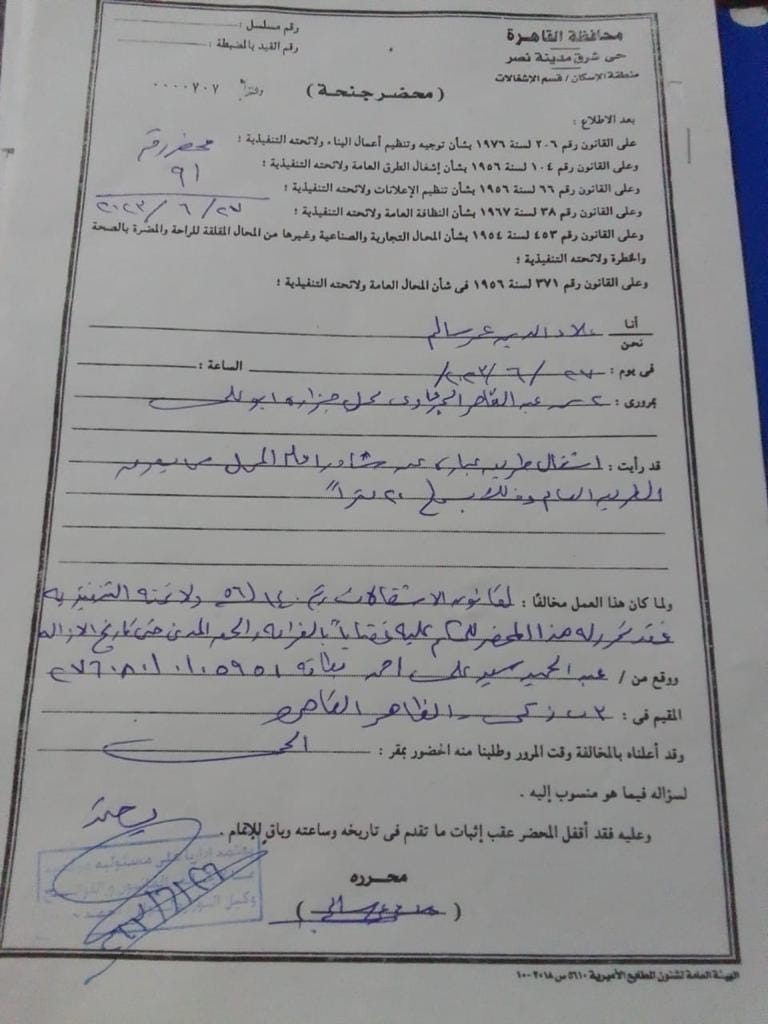 محافظة القاهرة
حى شرق مدينة نصر
منطقة الإسكان / قسم الإشغالات
رقم مسلسل :
رقم القيد بالمضبطة :
( محضر جنحة )
٠٠٠٠٧٠٧
بعد الاطلاع :
على القانون رقم ٢٠٦ لسنة ١٩٧٦ بشأن توجيه وتنظيم أعمال البناء ولائحته التنفيذية ؛
وعلى القانون رقم ١٠٤ لسنة ١٩٥٦ بشأن إشغال الطرق العامة ولائحته التنفيذية ؛
وعلى القانون رقم ٦٦ لسنة ١٩٥٦ بشأن تنظيم الإعلانات ولائحته التنفيذية ؛
وعلى القانون رقم ٣٨ لسنة ١٩٦٧ بشأن النظافة العامة ولائحته التنفيذية ؛
وعلى القانون رقم ٤٥٣ لسنة ١٩٥٤ بشأن المحال التجارية والصناعية وغيرها من المحال المقلقة للراحة والمضرة بالصحة
والخطرة ولائحته التنفيذية ؛
وعلى القانون رقم ٣٧١ لسنة ١٩٥٦ فى شأن المحال العامة ولائحته التنفيذية ؛
محضر رقم
٩١
٢٠٢٣/٦/٢٧
أنا
نحن
علاء الدين عمر سالم
فى يوم : ٢٠٢٣/٦/٢٧ الساعة :
بمرورى : ٢ ش عبد القاهر الجرجاوى محل جزاره
قد رأيت : اشغال طريق عباره عن امام المحل
الطريق العام وذلك ٢٠ مترا
ولما كان هذا العمل مخالفًا : لقانون الاشغالات رقم ١٤٠ / ٥٦ ولائحته التنفيذيه
فقد تحرر له هذا المحضر للحكم عليه بالغرامه حتى تاريخ الازاله
ووقع من / عبد الحميد سيد على احمد بطاقه
المقيم فى : الظاهر القاهره
وقد أعلناه بالمخالفة وقت المرور وطلبنا منه الحضور بمقر : الحى
لسؤاله فيما هو منسوب إليه .
وعليه فقد أقفل المحضر عقب إثبات ما تقدم فى تاريخه وساعته وباق للإتمام .
محرره
الهيئة العامة لشئون المطابع الأميرية ٥٦١٠ س ٢٠١٨-١٠٠